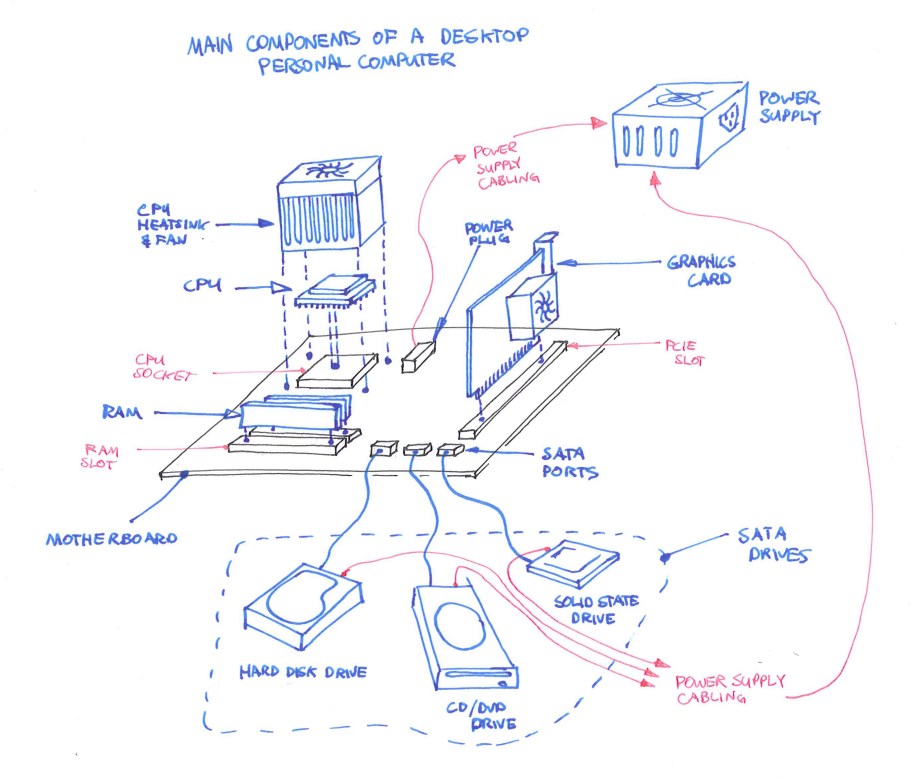 MAIN COMPONENTS OF A DESKTOP
PERSONAL COMPUTER
POWER
SUPPLY
POWER
SUPPLY
CABLING
CPU
HEATSINK
& FAN
POWER
PLUG
GRAPHICS
CARD
CPU
CPU
SOCKET
PCIE
SLOT
RAM
RAM
SLOT
SATA
PORTS
MOTHERBOARD
SATA
DRIVES
SOLID STATE
DRIVE
HARD DISK DRIVE
POWER SUPPLY
CABLING
CD/DVD
DRIVE